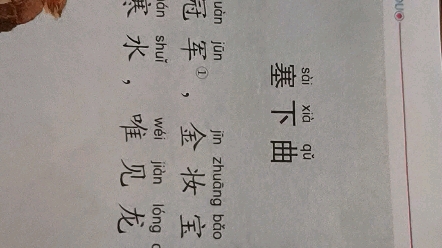 sài xià qǔ
塞下曲
uàn jūn jīn zhuāng bǎo
冠军①，金妆宝
án shuǐ wéi jiàn lóng
寒水，唯见龙